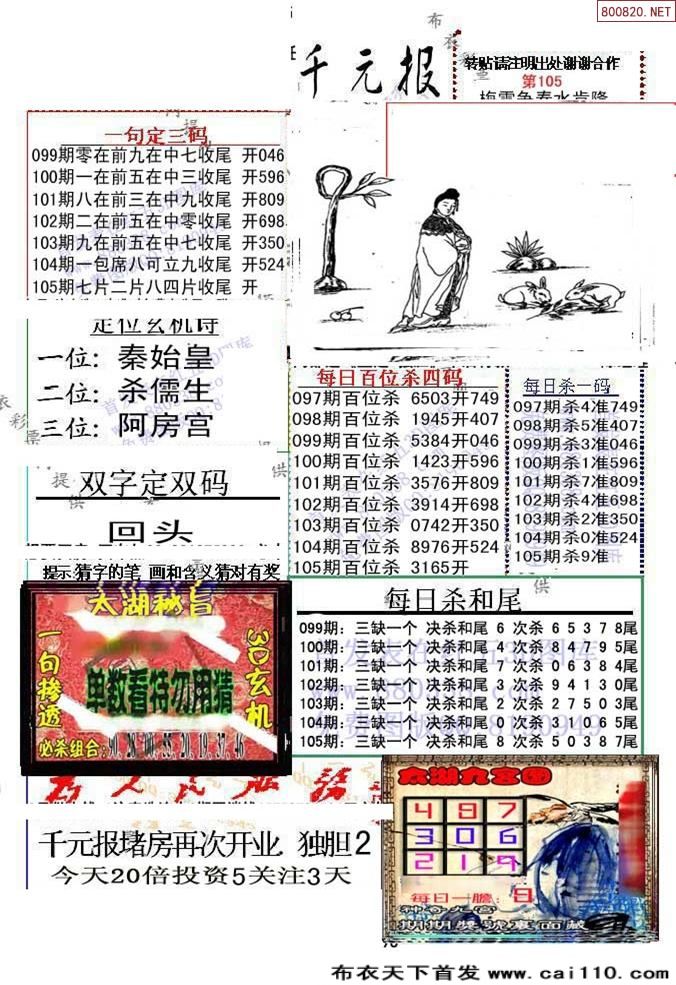 800820.NET
布衣彩票
千元报
转贴请注明出处谢谢合作
第105
梅雪争春水肯降
一句定三码
099期零在前九在中七收尾 开046
100期一在前五在中三收尾 开596
101期八在前三在中九收尾 开809
102期二在前五在中零收尾 开698
103期九在前五在中七收尾 开350
104期一包席八可立九收尾 开524
105期七片二片八四片收尾 开
定位玄机诗
一位: 秦始皇
二位: 杀儒生
三位: 阿房宫
双字定双码
回头
提示:猜字的笔 画和含义猜对有奖
每日百位杀四码
097期百位杀 6503开749
098期百位杀 1945开407
099期百位杀 5384开046
100期百位杀 1423开596
101期百位杀 3576开809
102期百位杀 3914开698
103期百位杀 0742开350
104期百位杀 8976开524
105期百位杀 3165开
每日杀一码
097期杀4准749
098期杀5准407
099期杀3准046
100期杀1准596
101期杀7准809
102期杀4准698
103期杀2准350
104期杀0准524
105期杀9准
提供
太湖秘旨
一句掺透
3D玄机
单数看待勿用猜
必杀组合:30,28,00,55,20,19,37,46
每日杀和尾
099期: 三缺一个 决杀和尾 6 次杀 6 5 3 7 8尾
100期: 三缺一个 决杀和尾 4 次杀 8 4 7 9 5尾
101期: 三缺一个 决杀和尾 7 次杀 0 6 3 8 4尾
102期: 三缺一个 决杀和尾 3 次杀 9 4 1 3 0尾
103期: 三缺一个 决杀和尾 2 次杀 2 7 5 0 3尾
104期: 三缺一个 决杀和尾 0 次杀 3 1 0 6 5尾
105期: 三缺一个 决杀和尾 8 次杀 5 0 3 8 7尾
千元报堵房再次开业. 独胆2
今天20倍投资5关注3天
太湖九宫图
4 8 7
3 0 6
2 1 9
每日一膽: 8
期期獎號畫面藏
布衣天下首发 www.cai110.com